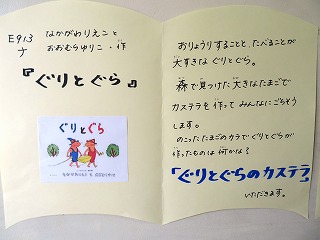 E913
ナ
なかがわりえこと
おおむらゆりこ・作
『ぐりとぐら』
ぐりとぐら
おりょうりすることと、たべることが
大すきな ぐりとぐら。
森で見つけた大きなたまごで
カステラを作って みんなにごちそう
します。
のこったたまごのカラでぐりとぐらが
作ったものは 何かな？
「ぐりとぐらのカステラ」
いただきます。